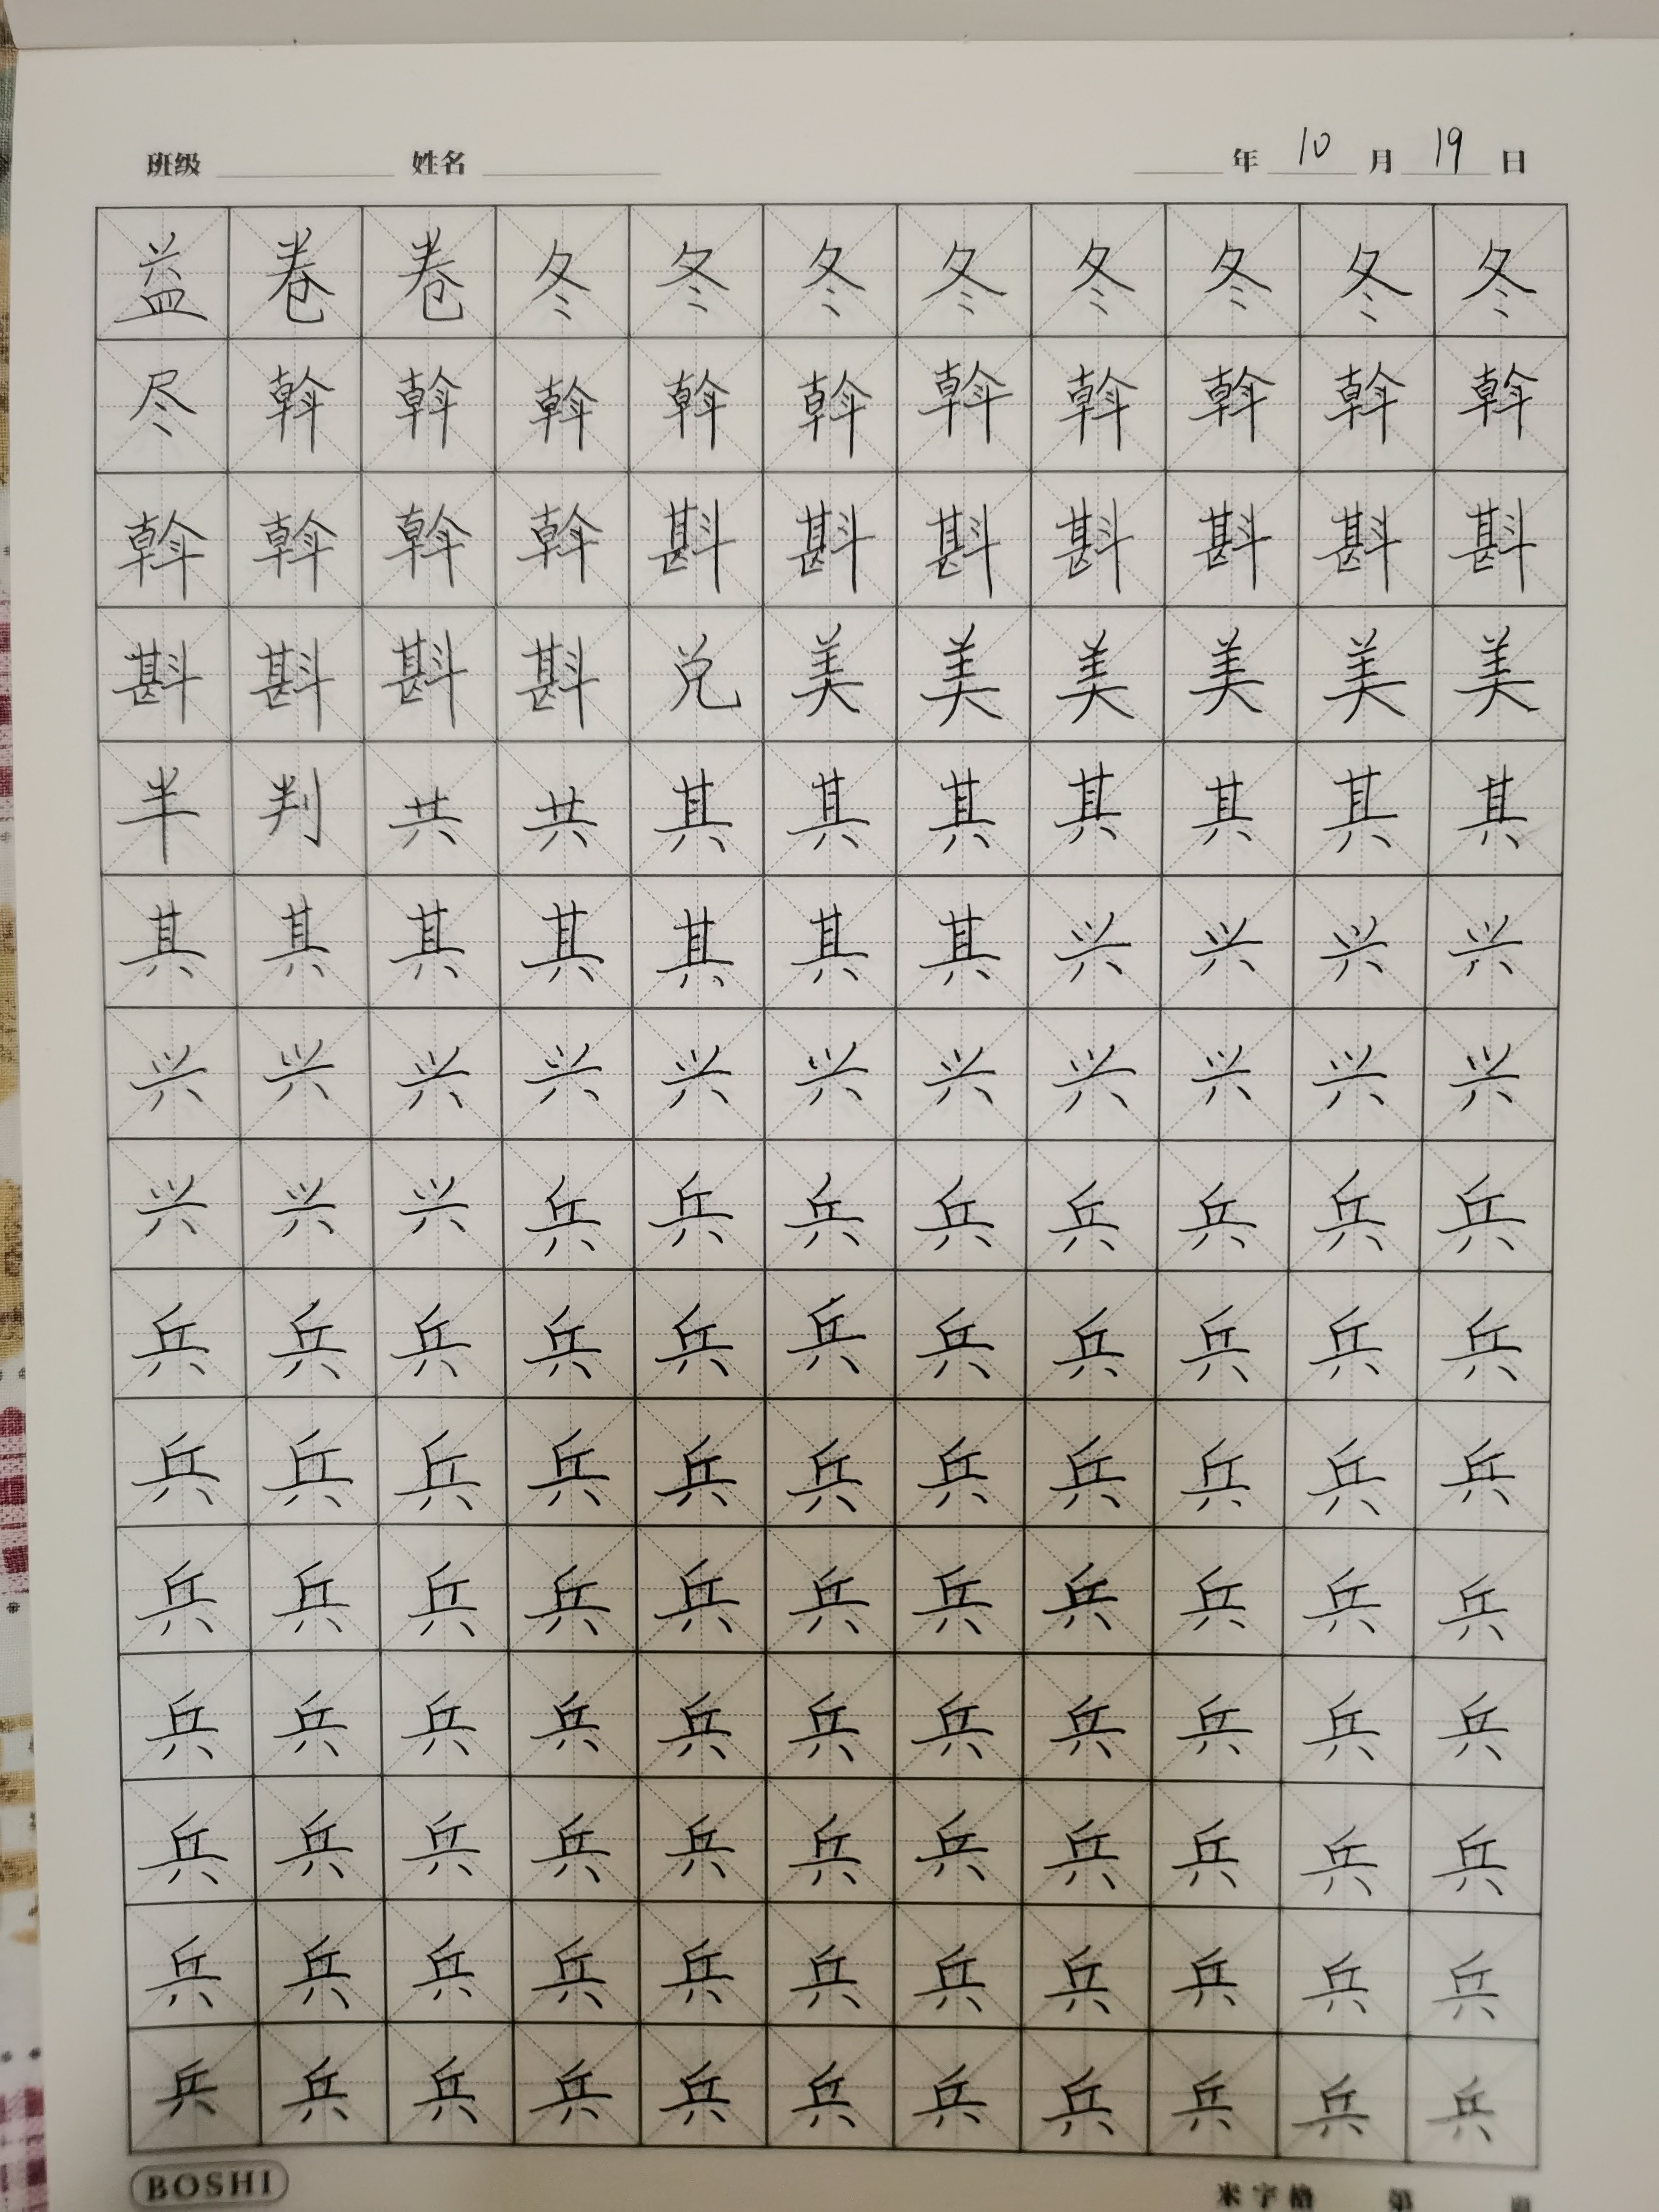 班级 姓名 年 10 月 19 日
益 卷 卷 冬 冬 冬 冬 冬 冬 冬 冬
尽 斡 斡 斡 斡 斡 斡 斡 斡 斡 斡
斡 斡 斡 斡 斟 斟 斟 斟 斟 斟 斟
斟 斟 斟 斟 兑 美 美 美 美 美 美
半 判 共 共 其 其 其 其 其 其 其
其 其 其 其 其 其 其 兴 兴 兴 兴
兴 兴 兴 兴 兴 兴 兴 兴 兴 兴 兴
兴 兴 兴 兵 兵 兵 兵 兵 兵 兵 兵
兵 兵 兵 兵 兵 兵 兵 兵 兵 兵 兵
兵 兵 兵 兵 兵 兵 兵 兵 兵 兵 兵
兵 兵 兵 兵 兵 兵 兵 兵 兵 兵 兵
兵 兵 兵 兵 兵 兵 兵 兵 兵 兵 兵
兵 兵 兵 兵 兵 兵 兵 兵 兵 兵 兵
兵 兵 兵 兵 兵 兵 兵 兵 兵 兵 兵
兵 兵 兵 兵 兵 兵 兵 兵 兵 兵 兵
BOSHI 米字格 第